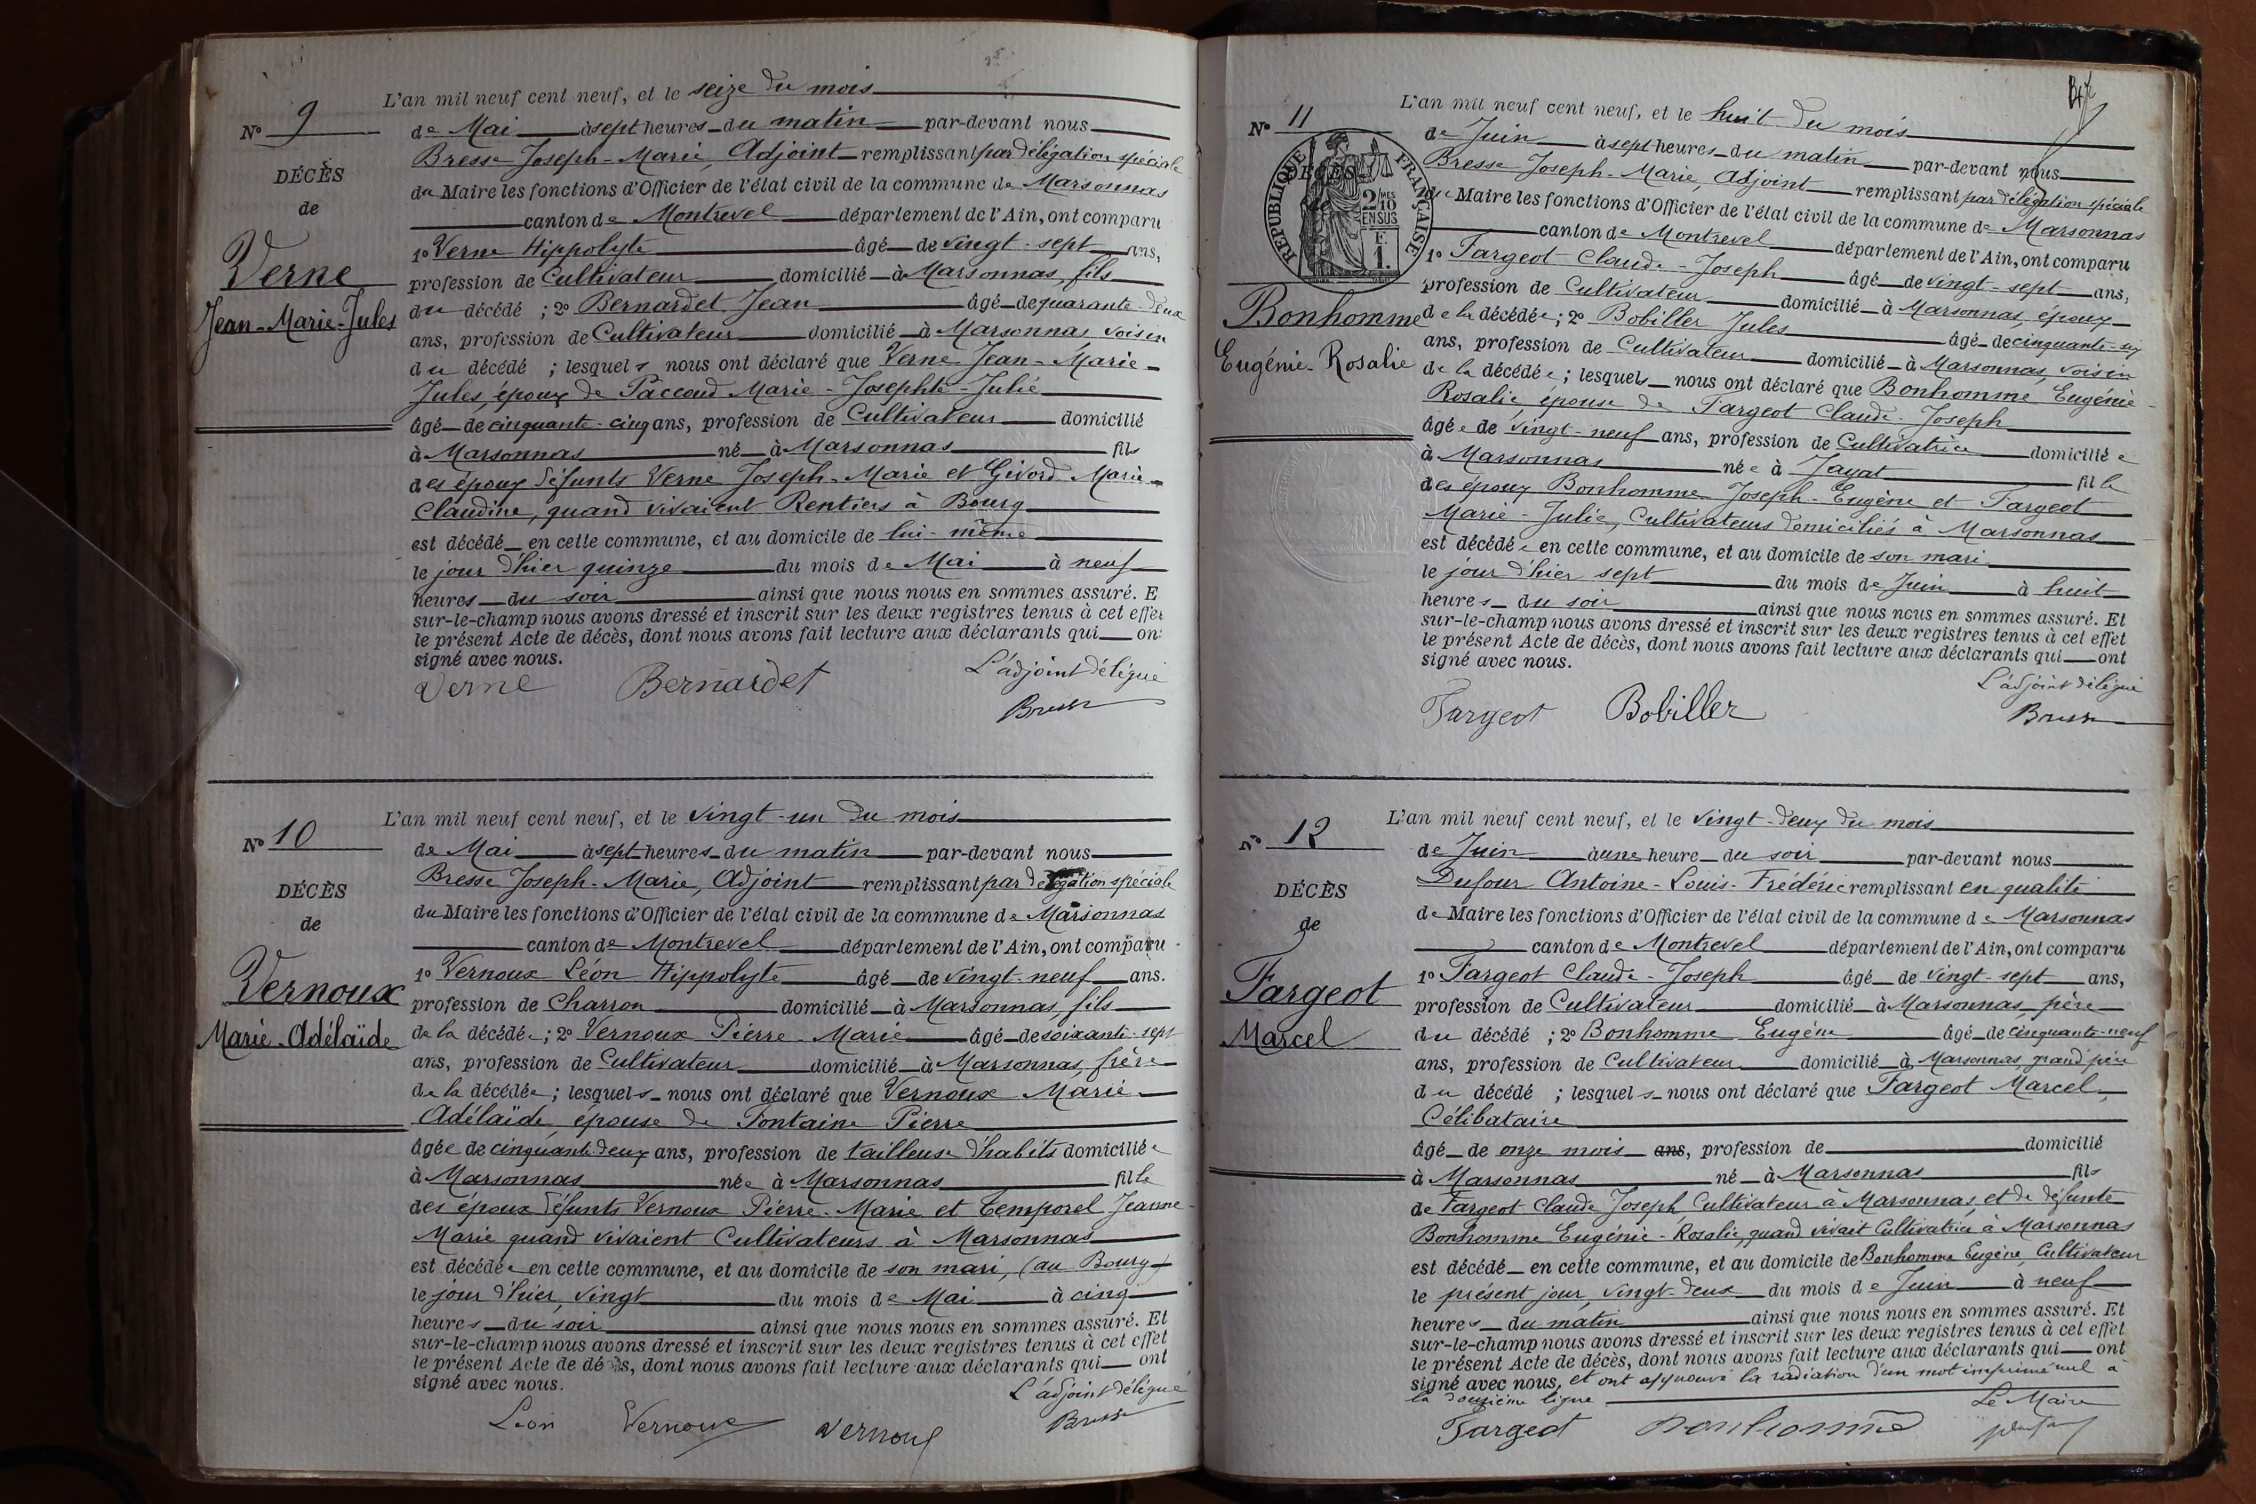 N° 9
DÉCÈS
de
Verne
Jean-Marie-Jules
L'an mil neuf cent neuf, et le seize du mois
de Mai à sept heures du matin par-devant nous
Bresse Joseph-Marie, Adjoint remplissant par délégation spéciale
du Maire les fonctions d'Officier de l'état civil de la commune de Marsonnas
canton de Montrevel département de l'Ain, ont comparu
1° Verne Hippolyte âgé de vingt-sept ans,
profession de Cultivateur domicilié à Marsonnas, fils
du décédé ; 2° Bernardet Jean âgé de quarante-deux
ans, profession de Cultivateur domicilié à Marsonnas voisin
du décédé ; lesquels nous ont déclaré que Verne Jean-Marie-
Jules, époux de Paccoud Marie-Josephte-Julie
âgé de cinquante-cinq ans, profession de Cultivateur domicilié
à Marsonnas né à Marsonnas fils
des époux défunts Verne Joseph-Marie et Givord Marie-
Claudine, quand vivaient Rentiers à Bourg
est décédé en cette commune, et au domicile de lui-même
le jour d'hier quinze du mois de Mai à neuf
heures du soir ainsi que nous nous en sommes assuré. E
sur-le-champ nous avons dressé et inscrit sur les deux registres tenus à cet effet
le présent Acte de décès, dont nous avons fait lecture aux déclarants qui ont
signé avec nous.
L'adjoint délégué
Verne Bernardet Bresse
N° 10
DÉCÈS
de
Vernoux
Marie-Adélaïde
L'an mil neuf cent neuf, et le vingt-un du mois
de Mai à sept heures du matin par-devant nous
Bresse Joseph-Marie, Adjoint remplissant par délégation spéciale
du Maire les fonctions d'Officier de l'état civil de la commune de Marsonnas
canton de Montrevel département de l'Ain, ont comparu
1° Vernoux Léon Hippolyte âgé de vingt-neuf ans.
profession de Charron domicilié à Marsonnas, fils
de la décédée ; 2° Vernoux Pierre-Marie âgé de soixante-sept
ans, profession de Cultivateur domicilié à Marsonnas, frère
de la décédée ; lesquels nous ont déclaré que Vernoux Marie-
Adélaïde, épouse de Fontaine Pierre
âgée de cinquante-deux ans, profession de tailleuse d'habits domiciliée
à Marsonnas née à Marsonnas fille
des époux défunts Vernoux Pierre-Marie et Temporel Jeanne-
Marie quand vivaient Cultivateurs à Marsonnas
est décédée en cette commune, et au domicile de son mari, (au Bourg)
le jour d'hier, vingt du mois de Mai à cinq
heures du soir ainsi que nous nous en sommes assuré. Et
sur-le-champ nous avons dressé et inscrit sur les deux registres tenus à cet effet
le présent Acte de décès, dont nous avons fait lecture aux déclarants qui ont
signé avec nous.
L'adjoint délégué
Léon Vernoux Vernoux Bresse
N° 11
RÉPUBLIQUE FRANÇAISE
DÉCÈS
2/10 MES
EN SUS
F.
1.
Bonhomme
Eugénie-Rosalie
L'an mil neuf cent neuf, et le huit du mois
de Juin à sept heures du matin par-devant nous
Bresse Joseph-Marie, Adjoint remplissant par délégation spéciale
du Maire les fonctions d'Officier de l'état civil de la commune de Marsonnas
canton de Montrevel département de l'Ain, ont comparu
1° Fargeot Claude-Joseph âgé de vingt-sept ans,
profession de Cultivateur domicilié à Marsonnas, époux
de la décédée ; 2° Bobiller Jules âgé de cinquante-six
ans, profession de Cultivateur domicilié à Marsonnas, voisin
de la décédée ; lesquels nous ont déclaré que Bonhomme Eugénie-
Rosalie épouse de Fargeot Claude-Joseph
âgée de vingt-neuf ans, profession de Cultivatrice domiciliée
à Marsonnas née à Jayat fille
des époux Bonhomme Joseph-Eugène et Fargeot
Marie-Julie, Cultivateurs domiciliés à Marsonnas
est décédée en cette commune, et au domicile de son mari
le jour d'hier sept du mois de Juin à huit
heures du soir ainsi que nous nous en sommes assuré. Et
sur-le-champ nous avons dressé et inscrit sur les deux registres tenus à cet effet
le présent Acte de décès, dont nous avons fait lecture aux déclarants qui ont
signé avec nous.
L'adjoint délégué
Fargeot Bobiller Bresse
N° 12
DÉCÈS
de
Fargeot
Marcel
L'an mil neuf cent neuf, et le vingt-deux du mois
de Juin à une heure du soir par-devant nous
Dufour Antoine-Louis-Frédéric remplissant en qualité
de Maire les fonctions d'Officier de l'état civil de la commune de Marsonnas
canton de Montrevel département de l'Ain, ont comparu
1° Fargeot Claude-Joseph âgé de vingt-sept ans,
profession de Cultivateur domicilié à Marsonnas, père
du décédé ; 2° Bonhomme Eugène âgé de cinquante-neuf
ans, profession de Cultivateur domicilié à Marsonnas, grand père
du décédé ; lesquels nous ont déclaré que Fargeot Marcel,
Célibataire
âgé de onze mois ans, profession de domicilié
à Marsonnas né à Marsonnas fils
de Fargeot Claude Joseph, Cultivateur à Marsonnas, et de défunte
Bonhomme Eugénie-Rosalie, quand vivait Cultivatrice à Marsonnas
est décédé en cette commune, et au domicile de Bonhomme Eugène, Cultivateur
le présent jour, vingt-deux du mois de Juin à neuf
heures du matin ainsi que nous nous en sommes assuré. Et
sur-le-champ nous avons dressé et inscrit sur les deux registres tenus à cet effet
le présent Acte de décès, dont nous avons fait lecture aux déclarants qui ont
signé avec nous, et ont approuvé la radiation d'un mot imprimé nul à
la douzième ligne
Le Maire
Fargeot Bonhomme